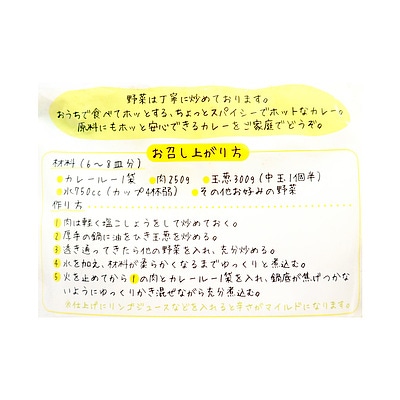 野菜は丁寧に炒めております。
おうちで食べてホッとする、ちょっとスパイシーでホットなカレー。
原料にもホッと安心できるカレーをご家庭でどうぞ。
お召し上がり方
材料(6~8皿分)
●カレールー1袋 ●肉250g ●玉葱300g(中玉1個半)
●水750cc(カップ4杯弱) ●その他お好みの野菜
作り方
1 肉は軽く塩こしょうをして炒めておく。
2 厚手の鍋に油をひき玉葱を炒める。
3 透き通ってきたら他の野菜を入れ、充分炒める。
4 水を加え、材料が柔らかくなるまでゆっくりと煮込む。
5 火を止めてから1の肉とカレールー1袋を入れ、鍋底が焦げつかな
いようにゆっくりかき混ぜながら充分煮込む。
※仕上げにリンゴジュースなどを入れると辛さがマイルドになります。